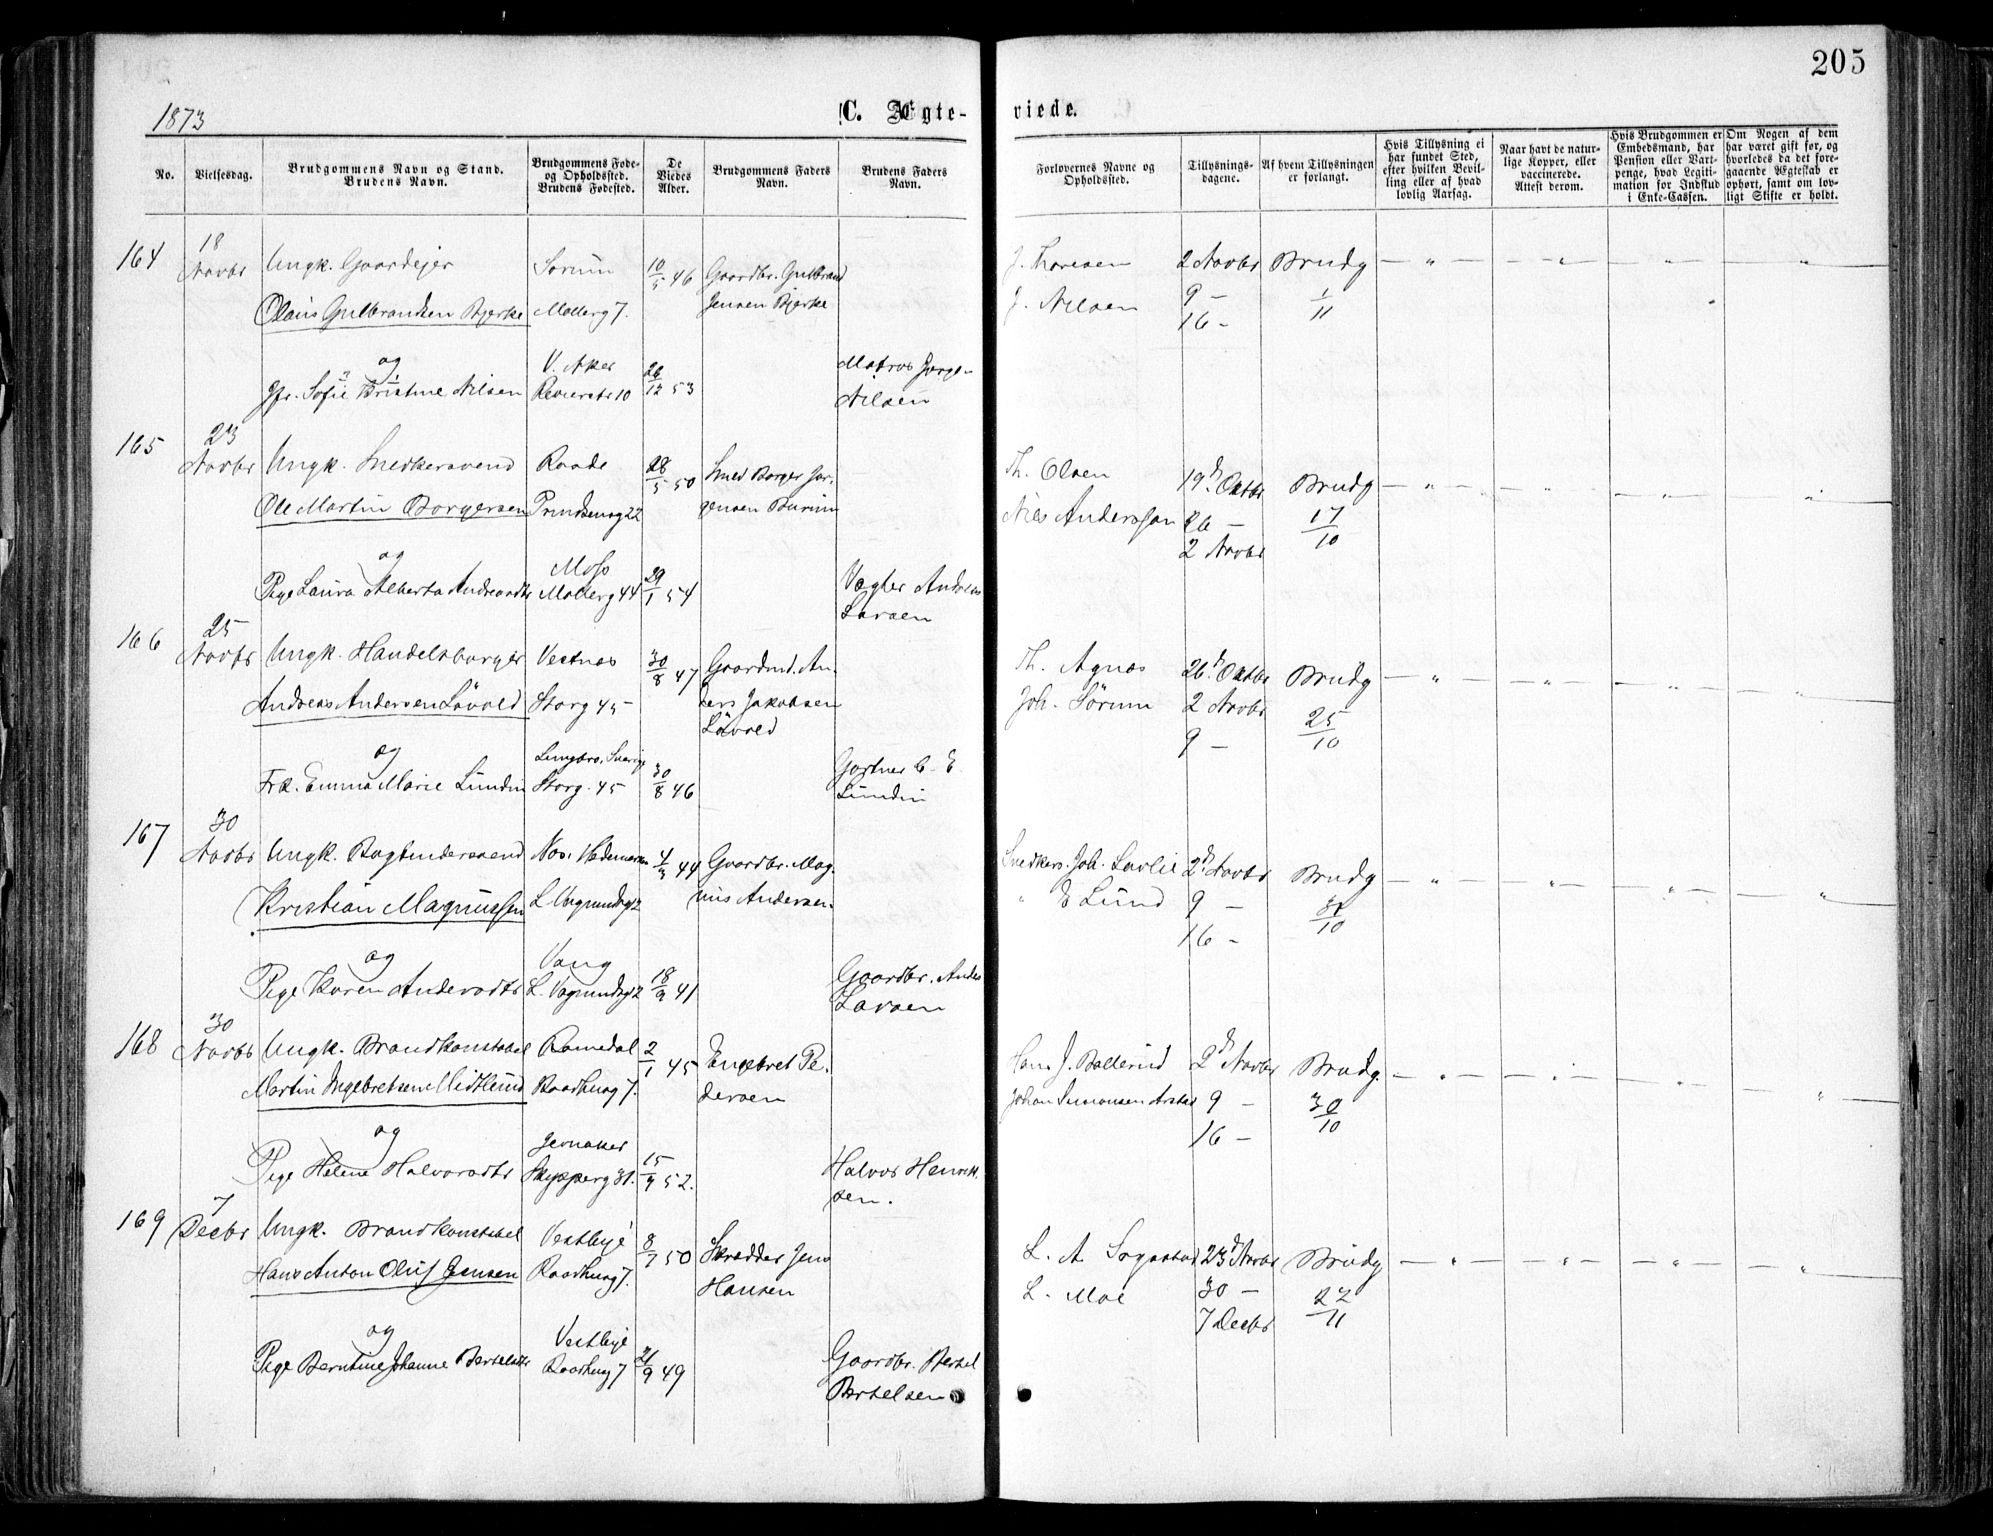 205
1873
C. Ægteviede.
No.
Vielsesdag.
Brudgommens Navn og Stand.
Brudens Navn.
Brudgommens Føde-
og Opholdssted.
Brudens Fødested.
De
Viedes
Alder.
Brudgommens Faders
Navn.
Brudens Faders
Navn.
Forlovernes Navne og
Opholdssted.
Tillysnings-
dagene.
Af hvem Tillysningen
er forlangt.
Hvis Tillysning ei
har fundet Sted,
efter hvilken Bevil-
ling eller af hvad
lovlig Aarsag.
Naar havt de natur-
lige Kopper, eller
vaccinerede.
Attest derom.
Hvis Brudgommen er
Embedsmand, har
Pension eller Vart-
penge, hvad Legiti-
mation for Indskud
i Enke-Cassen.
Om Nogen af dem
har været gift før, og
hvorledes da det fore-
gaaende Ægteskab er
ophørt, samt om lov-
ligt Skifte er holdt.
164
18
Novbr
Ungk. Gaardejer
Olaus Gulbrandsen Bjerke
Sorum
Mollerg 7.
10/5 46
Gaardbr. Gulbrand
Jensen Bjerke
J. Thoresen
J. Nilsen
2 Novbr
9 —
16 —
Brudg
1/11
og
Pge. Sofie Kristine Nilsen
V. Aker
Revierstr 10
26/12 53
Matros Jørge-
Nilsen
165
23
Novbr
Ungk. Snedkersvend
Ole Martin Borgersen
Raade
Prindsensg 22
28/5 50
Smed Borger Jør-
gensen Burum
Th. Olsen
Nils Anderssen
19d. Oktbr
26 —
2 Novbr
Brudg
17/10
og
Pige Laura Alberta Andreasdtr
Moss
Mollerg 44
29/1 54
Vægter Andreas
Larsen
166
25
Novbr
Ungk. Handelsborger
Andreas Andersen Løvold
Vestnes
Storg 45
30/8 47
Gaardmd. An-
ders Jakobsen
Løvold
Th. Agnæs
Joh. Sørum
26d. Oktbr
2 Novbr
9 —
Brudg
25/10
og
Frk. Emma Marie Lundin
Storg. 45
30/8 46
Gartner C. E.
Lundin
167
30
Novbr
Ungk. Bogbindersvend
Kristian Magnussen
Næs. Hedemarken
4/3 44
Gaardbr. Mag-
nus Andersen.
Snedkers. Joh. Lovlie
" E Lund
2d Novbr
9 —
16 —
Brudg
31/10
og
Pige Karen Andersdtr
Vang
18/9 41
Gaardbr. Anders
Larsen
168
30
Novbr
Ungk. Brandkonstabel
Martin Ingebretsen Midtlund
Romedal
Raadhusg 7.
2/1 45
Engebret Pe-
dersen
Hans J. Ballerud
Johan Simonsen
2d Novbr
9 —
16 —
Brudg.
30/10
og
Pige Helene Halvorsdtr
Jevnaker
Skipperg 31.
15/9 52.
Halvor Henrik-
sen.
169
7
Decbr
Ungk. Brandkonstabel
Hans Anton Oluf Jensen
Vestbye
Raadhusg 7.
8/7 50
Skredder Jens
Hansen
L. A. Sogstad
L. Moe
23d Novbr
30 —
7 Decbr
Brudg
22/11
og
Pige Berntine Johanne Bertelsdtr
Vestbye
Raadhusg 7
21/9 49
Gaardbr. Bertel
Bertelsen